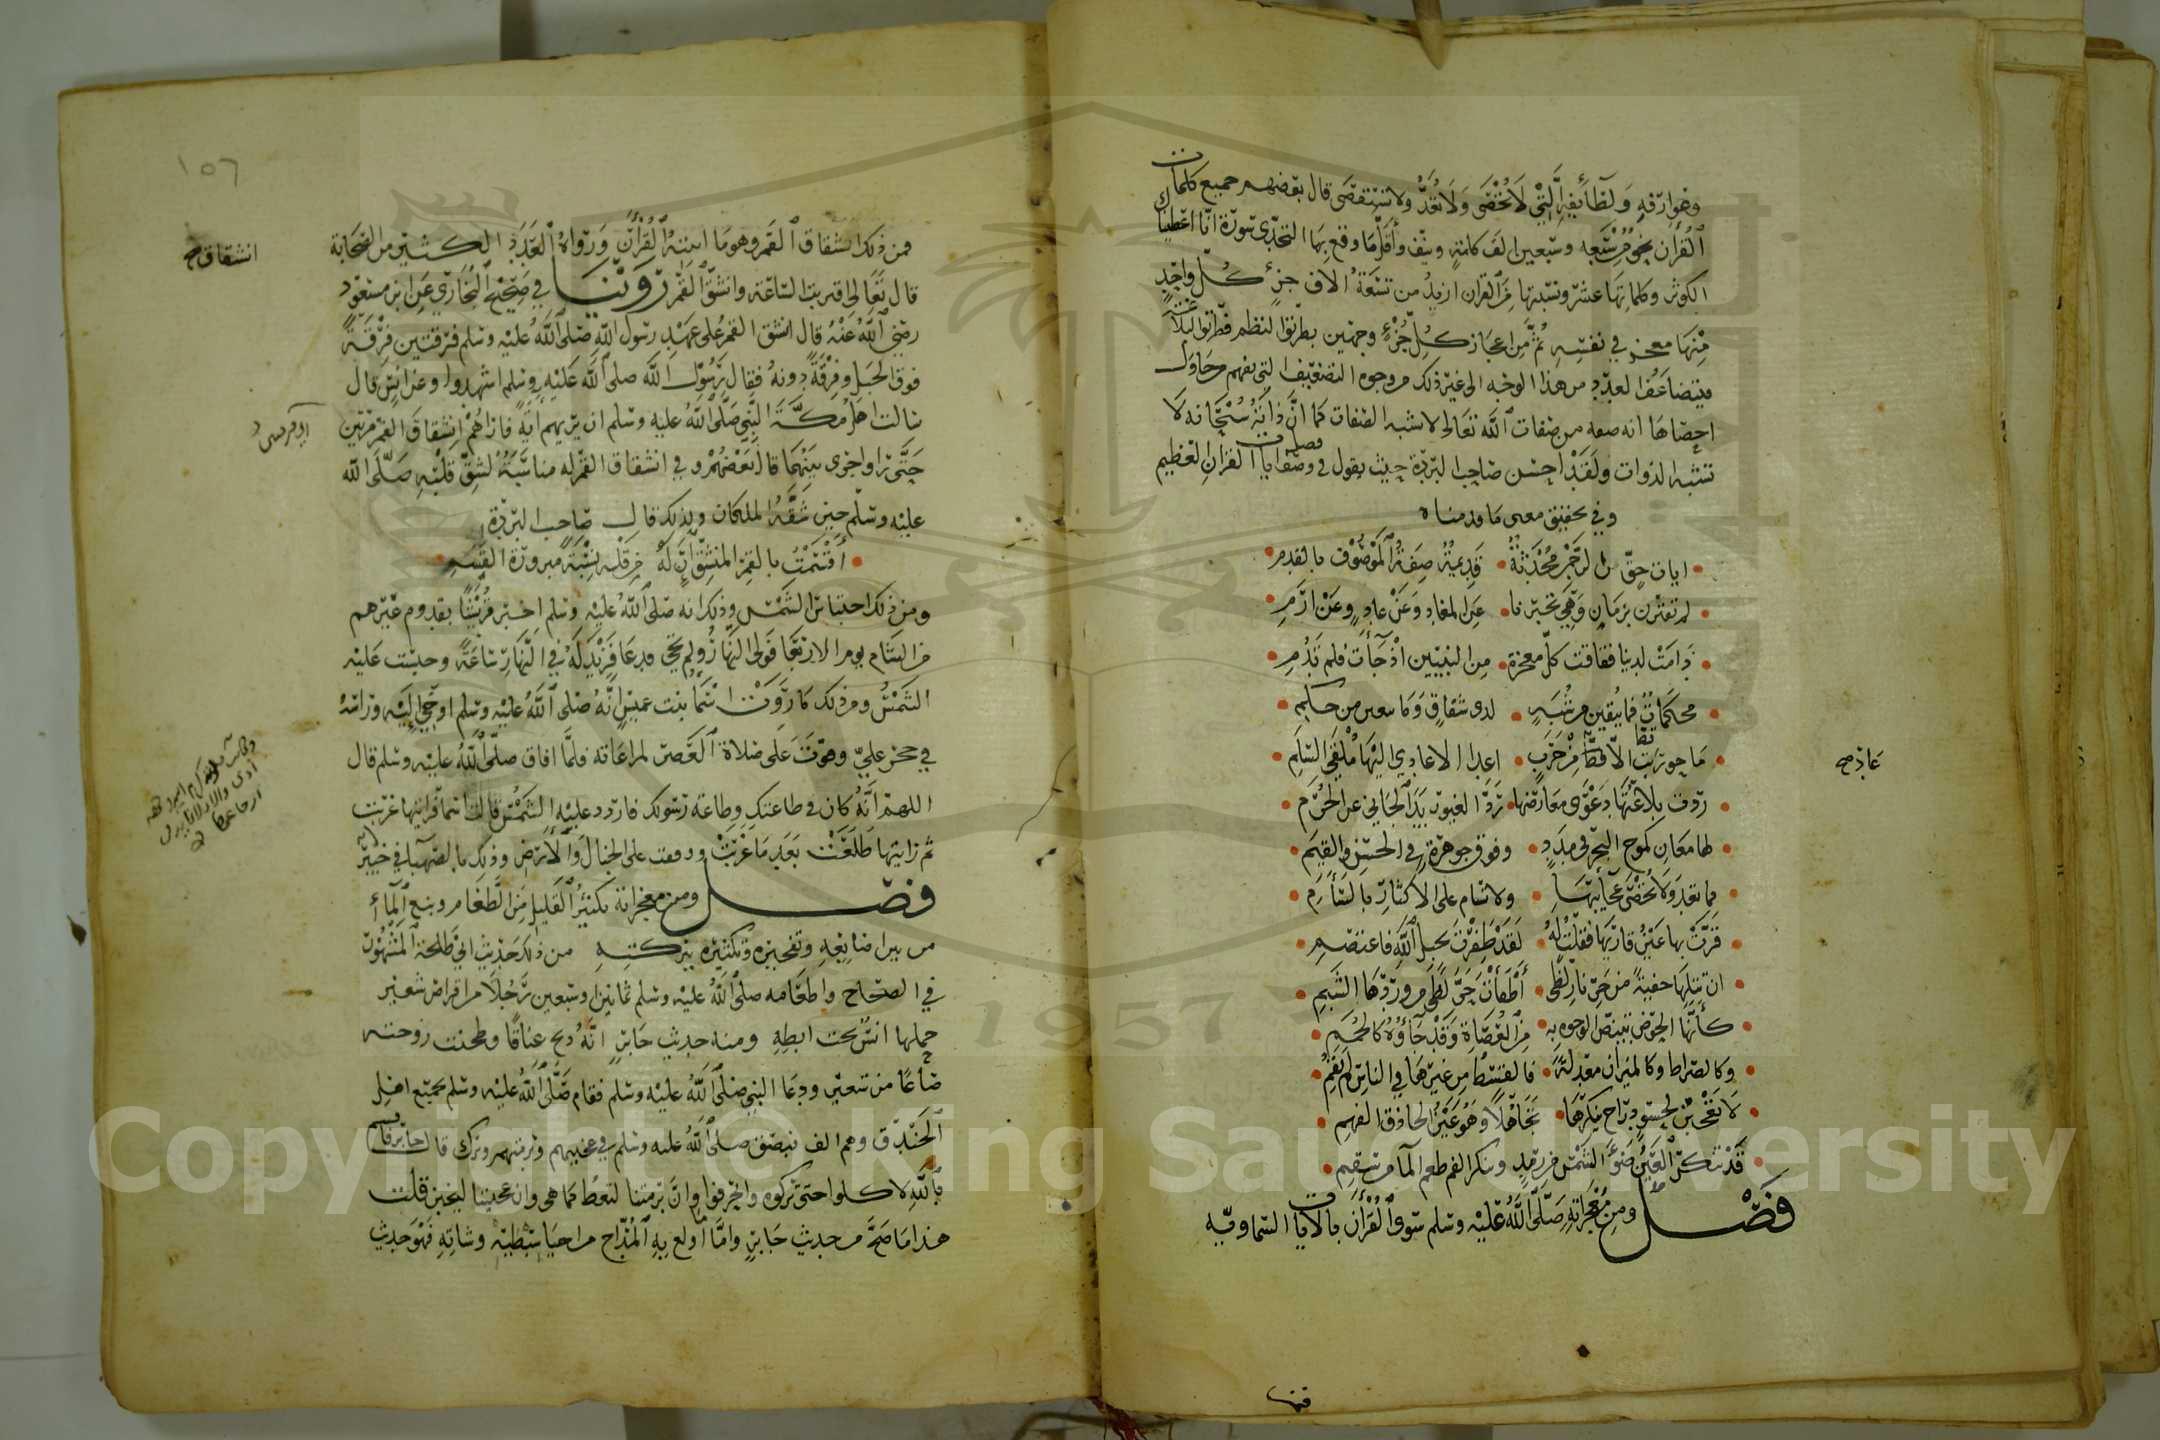 وخوارقه ولطائفه التي لا تحصى ولا تعد ولا تستقصى قال بعضهم جميع كلمات
القرآن نحو من سبعه وسبعين الف كلمة ونيف وأقل ما وقع بها التحدي سورة انا اعطيناك
الكوثر وكلماتها عشر ونسبتها من القرآن ازيد من تسعة الاف جزء كل واحد
منها معجز في نفسه ثم من اعجاز كل جزء وجهين بطريق النظم
فيتضاعف العدد من هذا الوجه الى غير ذلك من وجوه التضعيف التي من حاول
احصاها انه صفه من صفات الله تعالى لا تشبه الصفات كما ان ذاته سبحانه لا
تشبه الذوات ولقد احسن صاحب البردة حيث يقول في وصف ايات القرآن العظيم
وفي تحقيق معنى ما قدمناه
ايات حق من الرحمن محدثة قديمة صفة الموصوف بالقدم
لم تقترن بزمان وهي تخبرنا عن المعاد وعن عاد وعن ارم
دامت لدينا ففاقت كل معجزة من النبيين اذ جأت فلم تدم
محكمات فما يبقين من شبه لدى شقاق وما يبغين من حكم
ما حوربت قط الا من حرب اعدا الاعادي اليها ملقي السلم
ردت بلاغتها دعوى معارضها رد الغيور يد الجاني عن الحرم
لها معان كموج البحر في مدد وفوق جوهره في الحسن والقيم
فما تعد ولا تحصى عجايبها ولا تسام على الاكثار بالسأم
قرت بها عين قاريها فقلت له لقد ظفرت بحبل الله فاعتصم
ان تتلها خيفة من حر نار لظى أطفأت حر لظى من وردها الشبم
كأنها الحوض تبيض الوجوه به من العصاة وقد جاؤه كالحمم
وكالصراط وكالميزان معدلة فالقسط من غيرها في الناس لم يقم
لا تعجبن لحسود راح ينكرها تجاهلا وهو عين الحاذق الفهم
قد تنكر العين ضوء الشمس من رمد وينكر الفم طعم الما من سقم
فصل ومن معجزاته صلى الله عليه وسلم سوى القرآن بالايات السماويه
فمن
١٥٦
انشقاق
فمن ذلك انشقاق القمر وهو ما اثبته القرآن ورواه العدد الكثير من الصحابة
قال تعالى اقتربت الساعة وانشق القمر روينا في صحيح البخاري عن ابن مسعود
رضي الله عنه قال انشق القمر على عهد رسول الله صلى الله عليه وسلم فرقتين فرقة
فوق الجبل وفرقة دونه فقال رسول الله صلى الله عليه وسلم اشهدوا وعن انس قال
سالت اهل مكة النبي صلى الله عليه وسلم ان يريهم اية فاراهم انشقاق القمر مرتين
حتى راوا حرى بينهما قال بعضهم وفي انشقاق القمر له مناسبة لشق قلبه صلى الله
عليه وسلم حين شقه الملكان ولذلك قال صاحب البردة
أقسمت بالقمر المنشق ان له من قلبه نسبة مبرورة القسم
ومن ذلك احتباس الشمس وذلك انه صلى الله عليه وسلم اخبر قريشا بقدوم عيرهم
من الشام يوم الاربعا فولى النهار ولم يجي فدعا فزيد له في النهار ساعة وحبست عليه
الشمس ومن ذلك ما روت اسما بنت عميس انه صلى الله عليه وسلم اوحي اليه وراسه
في حجر علي وفوت على صلاة العصر لمراعاته فلما افاق صلى الله عليه وسلم قال
اللهم انه كان في طاعتك وطاعة رسولك فاردد عليه الشمس قالت اسما فرايتها غربت
ثم رايتها طلعت بعد ما غربت ووقعت على الجبال والارض وذلك بالصهبا في خيبر
فصل ومن معجزاته تكثير القليل من الطعام ونبع الما
من بين اصابعه وتفجيره وتكثيره ببركته من ذلك حديث ابي طلحة المشهور
في الصحاح واطعامه صلى الله عليه وسلم ثمانين او سبعين رجلا من اقراص شعير
حملها انس تحت ابطه ومنه حديث جابر انه ذبح عناقا وطحنت زوجته
صاعا من شعير ودعا النبي صلى الله عليه وسلم فقام صلى الله عليه وسلم بجميع اهل
الخندق وهم الف فبصق صلى الله عليه وسلم في عجينهم وبرمتهم وبرك قال جابر فاقسم
بالله لاكلوا حتى تركوه وانحرفوا وان برمتنا لتغط كما هي وان عجيننا ليخبز قلت
هذا ما صح من حديث جابر واما ما اولع به المداح من احيا سبطيه وشاته فهو حديث
Copyright © King Saud University
1957